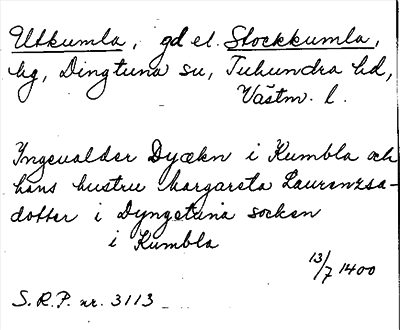 Utkumla, gd el. Stockkumla,
hg, Dingtuna sn, Tuhundra hd,
Västm. l.
Yngeualder Dyækn i Kumbla och
hans hustru Margareta Laurenzsa-
dotter i Dyngetuna socken
i Kumbla
13/7 1400
S.R.P. nr. 3113